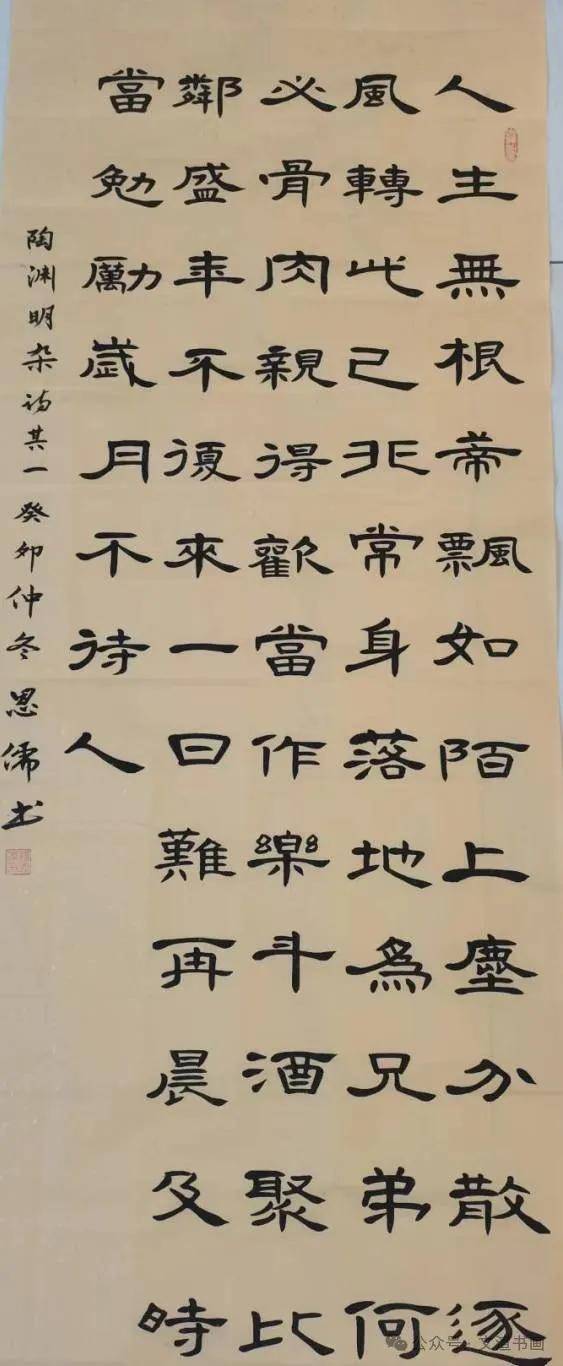 人生無根蒂飄如陌上塵分散逐
風轉此已非常身落地為兄弟何
必骨肉親得歡當作樂斗酒聚比
鄰盛年不復來一日難再晨及時
當勉勵歲月不待人
陶渊明杂诗其一癸卯仲冬恩儒书
公众号·文道书画